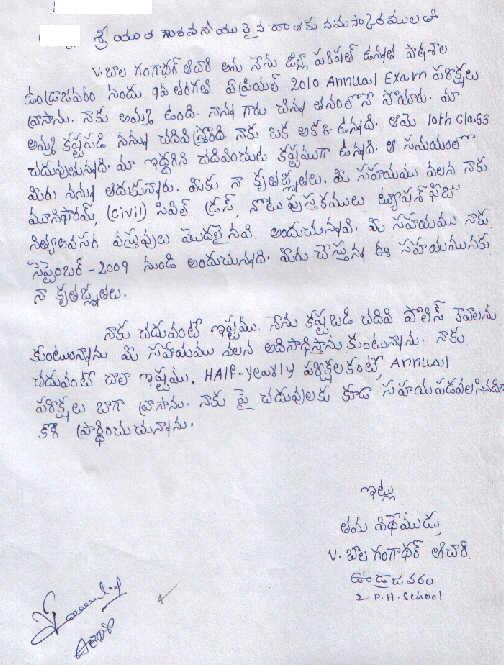 శ్రీయుత గౌరవనీయులైన దాతకు నమస్కారములతో
V. బాల గంగాధర్ ఆచారి అను నేను జిల్లా పరిషత్ ఉన్నత పాఠశాల
ఉండ్రాజవరం నందు 9వ తరగతి ఏప్రియల్ 2010 Annual Exam పరీక్షలు
వ్రాసాను. నాకు అమ్మ ఉంది. నాన్న గారు చిన్న తనంలోనే పోయారు. మా
అమ్మ కష్టపడి నన్ను చదివిస్తోంది. నాకు ఒక అక్క ఉన్నది. ఆమె 10th Class
చదువుతున్నది. మా ఇద్దరిని చదివించుట కష్టముగా ఉన్నది. ఆ సమయంలో
మీరు నన్ను ఆదుకున్నారు. మీకు నా కృతజ్ఞతలు. మీ సహాయము వలన నాకు
యూనిఫారమ్, (civil) సివిల్ డ్రస్, నోటు పుస్తకములు ట్యూషన్ ఫీజు
నిత్యావసర వస్తువులు మొదలైనవి అందుచున్నవి. మీ సహాయము నాకు
సెప్టెంబర్ - 2009 నుండి అందుచున్నది. మీరు చేస్తున్న ఈ సహాయమునకు
నా కృతజ్ఞతలు.
నాకు చదువంటే ఇష్టము. నేను కష్టబడి చదివి పోలీస్ కావాలను
కుంటున్నాను మీ సహాయము వలన అది సాధిస్తాను కుంటున్నాను. నాకు
చదువంటే చాలా ఇష్టము. HALF-yearly పరీక్షలకంటే Annual
పరీక్షలు బాగా వ్రాసాను. నాకు పై చదువులకు కూడా సహాయపడవలసినదిగా
కోరి ప్రార్థించుచున్నాను.
ఇట్లు
తమ విధేయుడు
V. బాల గంగాధర్ ఆచారి
ఉండ్రాజవరం
Z.P.H. School